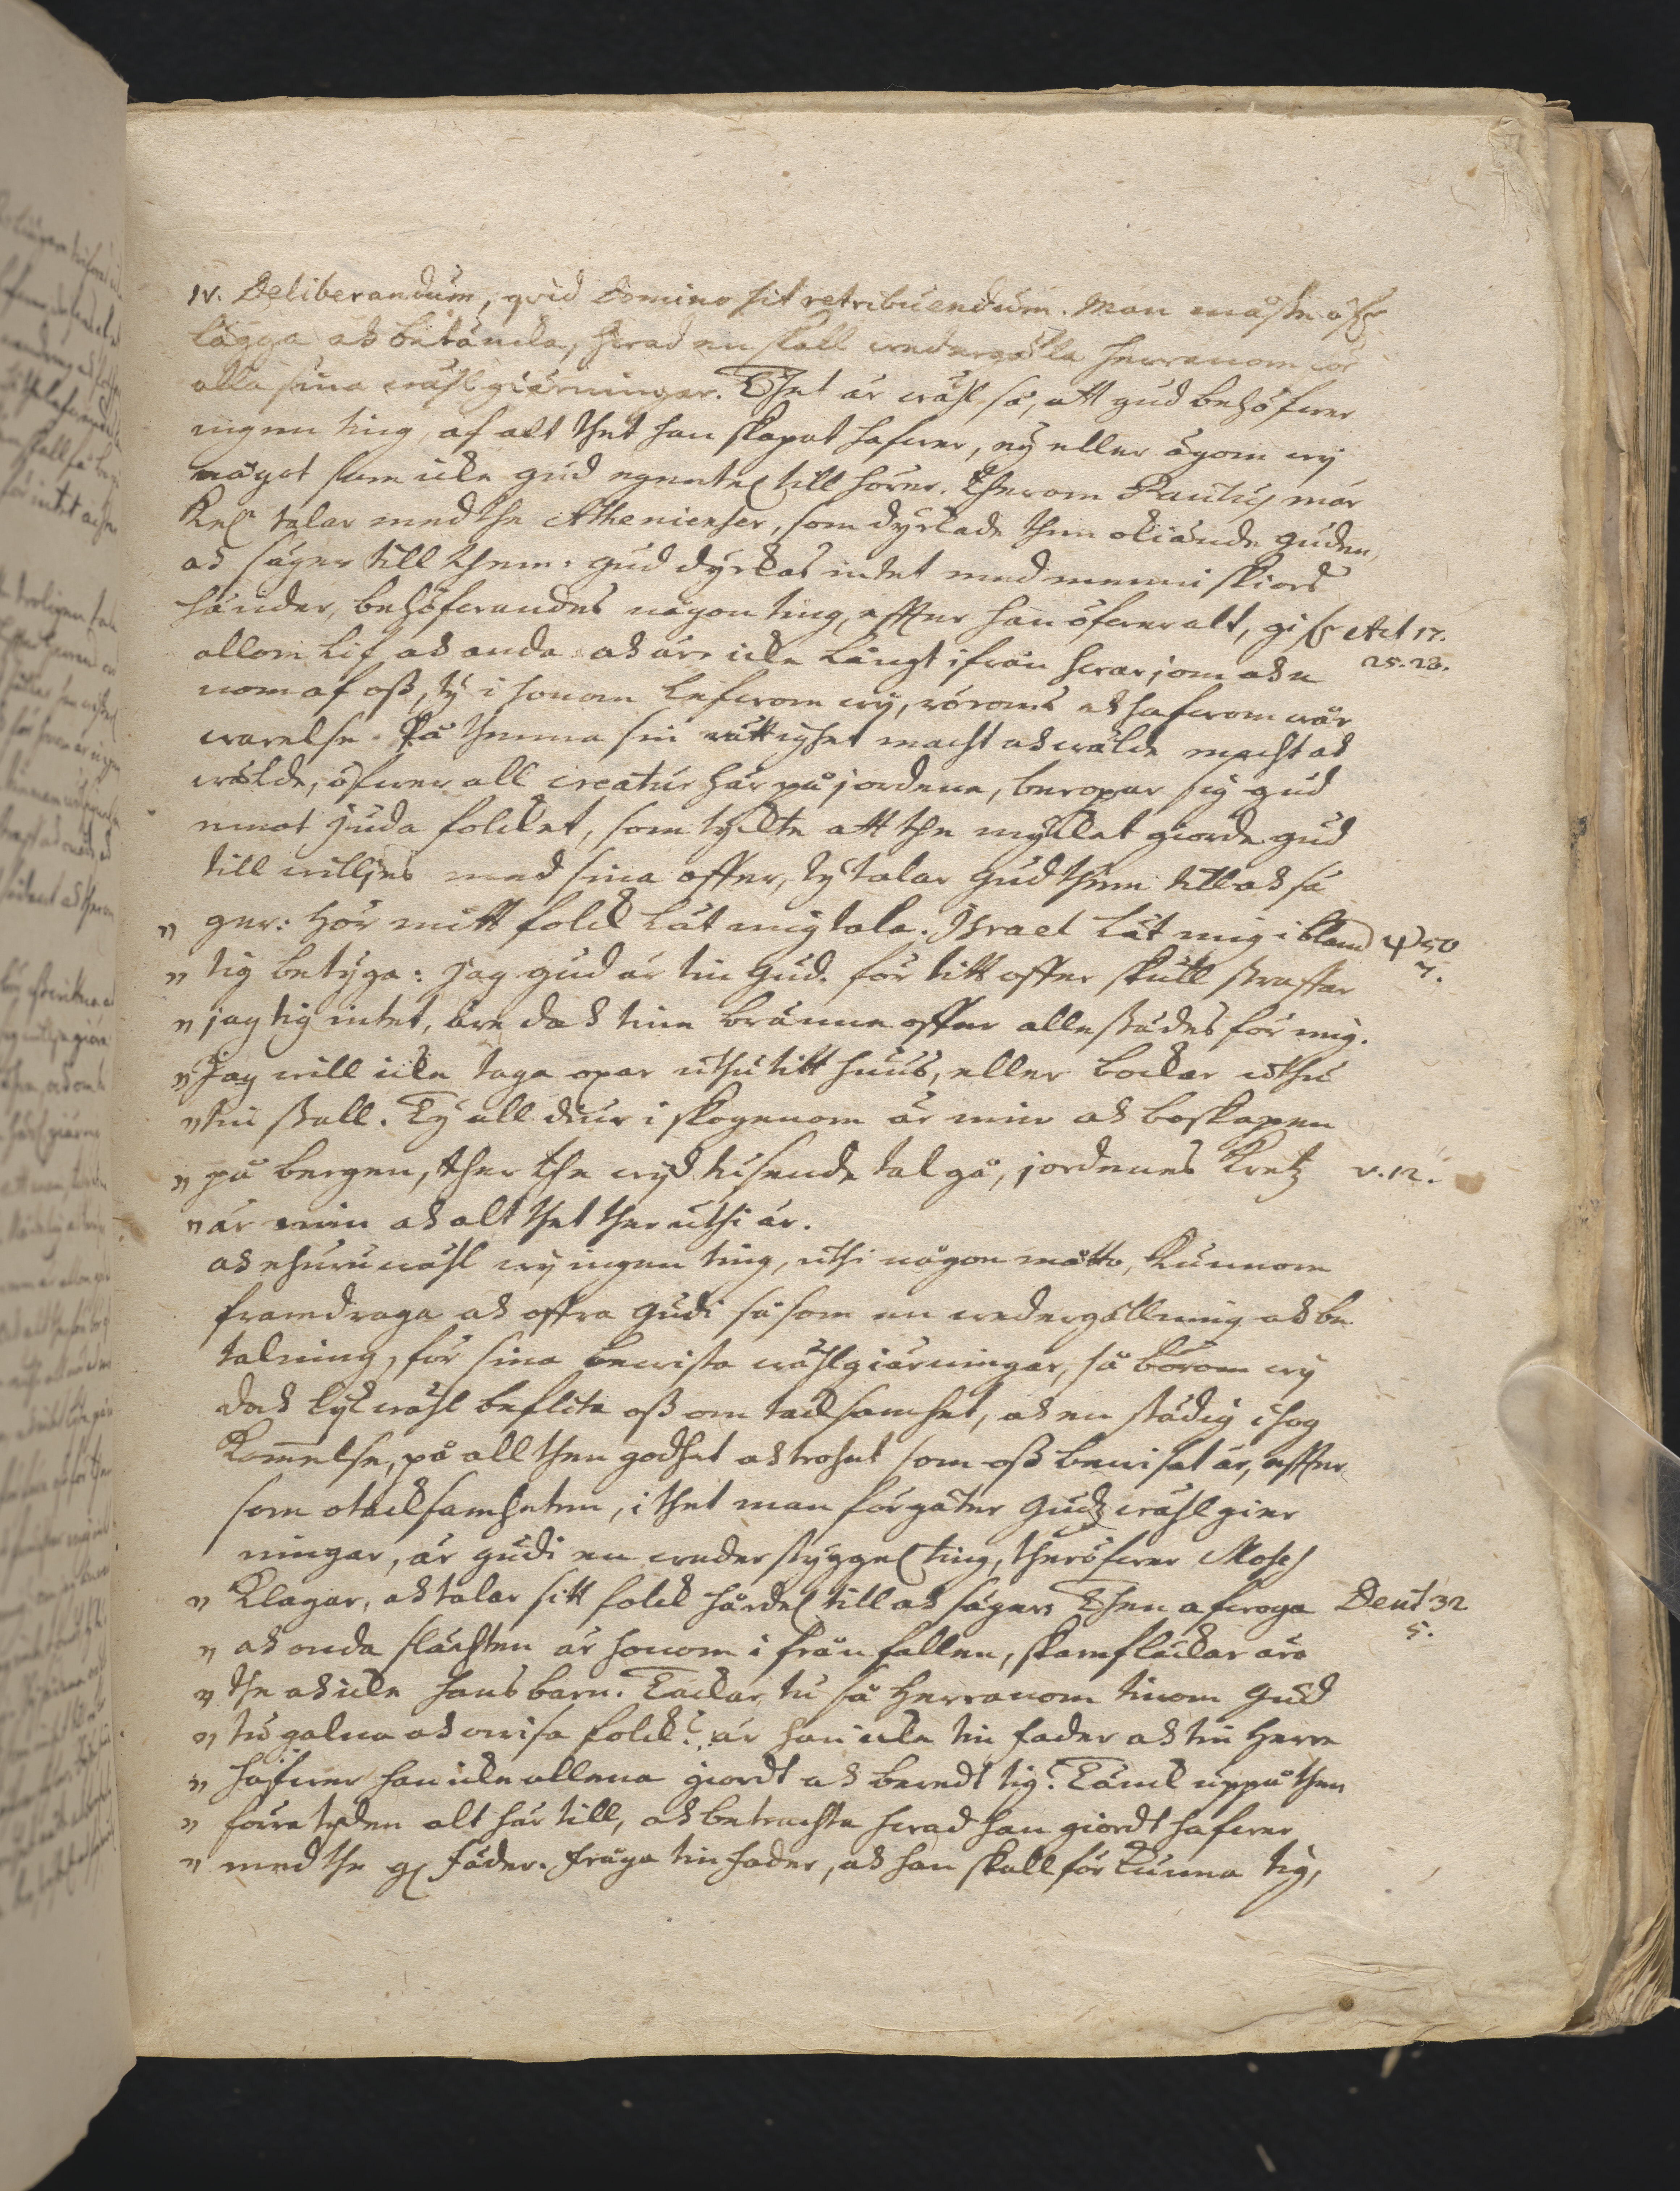 IV. Deliberandum, qvid Domino sit retribuendum. Man måste öfwer
lägga och betäncka, hwad en skall wedergälla herranom för
alla sina wählgiärningar. Thet är wähl så, att gud behöfwer
ingen ting, af alt thet han skapat hafwer, ey eller ägom wij
något som icke gud egentel till hörer. Therom Paulus mär
kel talar med the Athenienser, som dyrckade then okiände guden,
och säger till them: gud dyrckas intet med menniskiors
händer, behöfwandes någon ting, effter han öfwer alt, gifwer Act 17.
allom lif och anda och är icke långt ifrån hwarjom och e 25.28.
nom af oss, ty i honom lefwom wij, röroms och hafwom wår
warelse. På thenna sin rättighet macht och wälde macht och
wälde, öfwer all creatur här på jordene, beropar sig gud
emot juda folcket, som tyckte att the mycket giorde gud
till willies med sina offer, ty talar Gud them till och sä
" ger: hör mitt folck låt mig tala. Israel låt mig ibland ψ 50
" tig betyga: jag gud är tin Gud. för titt offer skull straffar 7.
" jag tig intet, äre doch tine bränne offer allestädes för mig.
" Jag will icke taga oxar uthu titt huus, eller bockar uthu
" tin stall. Ty all diur i skogenom är min och boskapen
" på bergen, ther the wijd tusende tal gå, jordenes Kretz v.12.
" är min och alt thet ther uthi är.
och ehuruwähl wij ingen ting, uthi någon motto, kunnom
framdraga och offra Gudi såsom en wedergällning och be
talning, för sina bewista wählgiärningar, så börom wij
doch lykwähl beflita oss om tacksamhet, och en städig ihog
kom̄else, på all then godhet och trohet som oss bewisat är, effter
som otacksamheten, i thet man förgäter Gudz wählgier
ningar, är gudi en wederstyggel ting, theröfwer Moses
" klagar, och talar sitt folck hårdel till och säger: Then afwoga Deut 32
" och onda slächten är honom i från fallen, skamfläckar äro 5.
" the och icke hans barn. Tackar tu så Herranom tinom Gud
" tu galna och owisa folck? är han icke tin fader och tin Herre
" hafwer han icke allena giordt och beredt tig? Tänck uppå then
" förra tyden alt här till, och betrachta hwad han giordt hafwer
" med the gl fäder. fråga tin fader, och han skall förkunna tig,